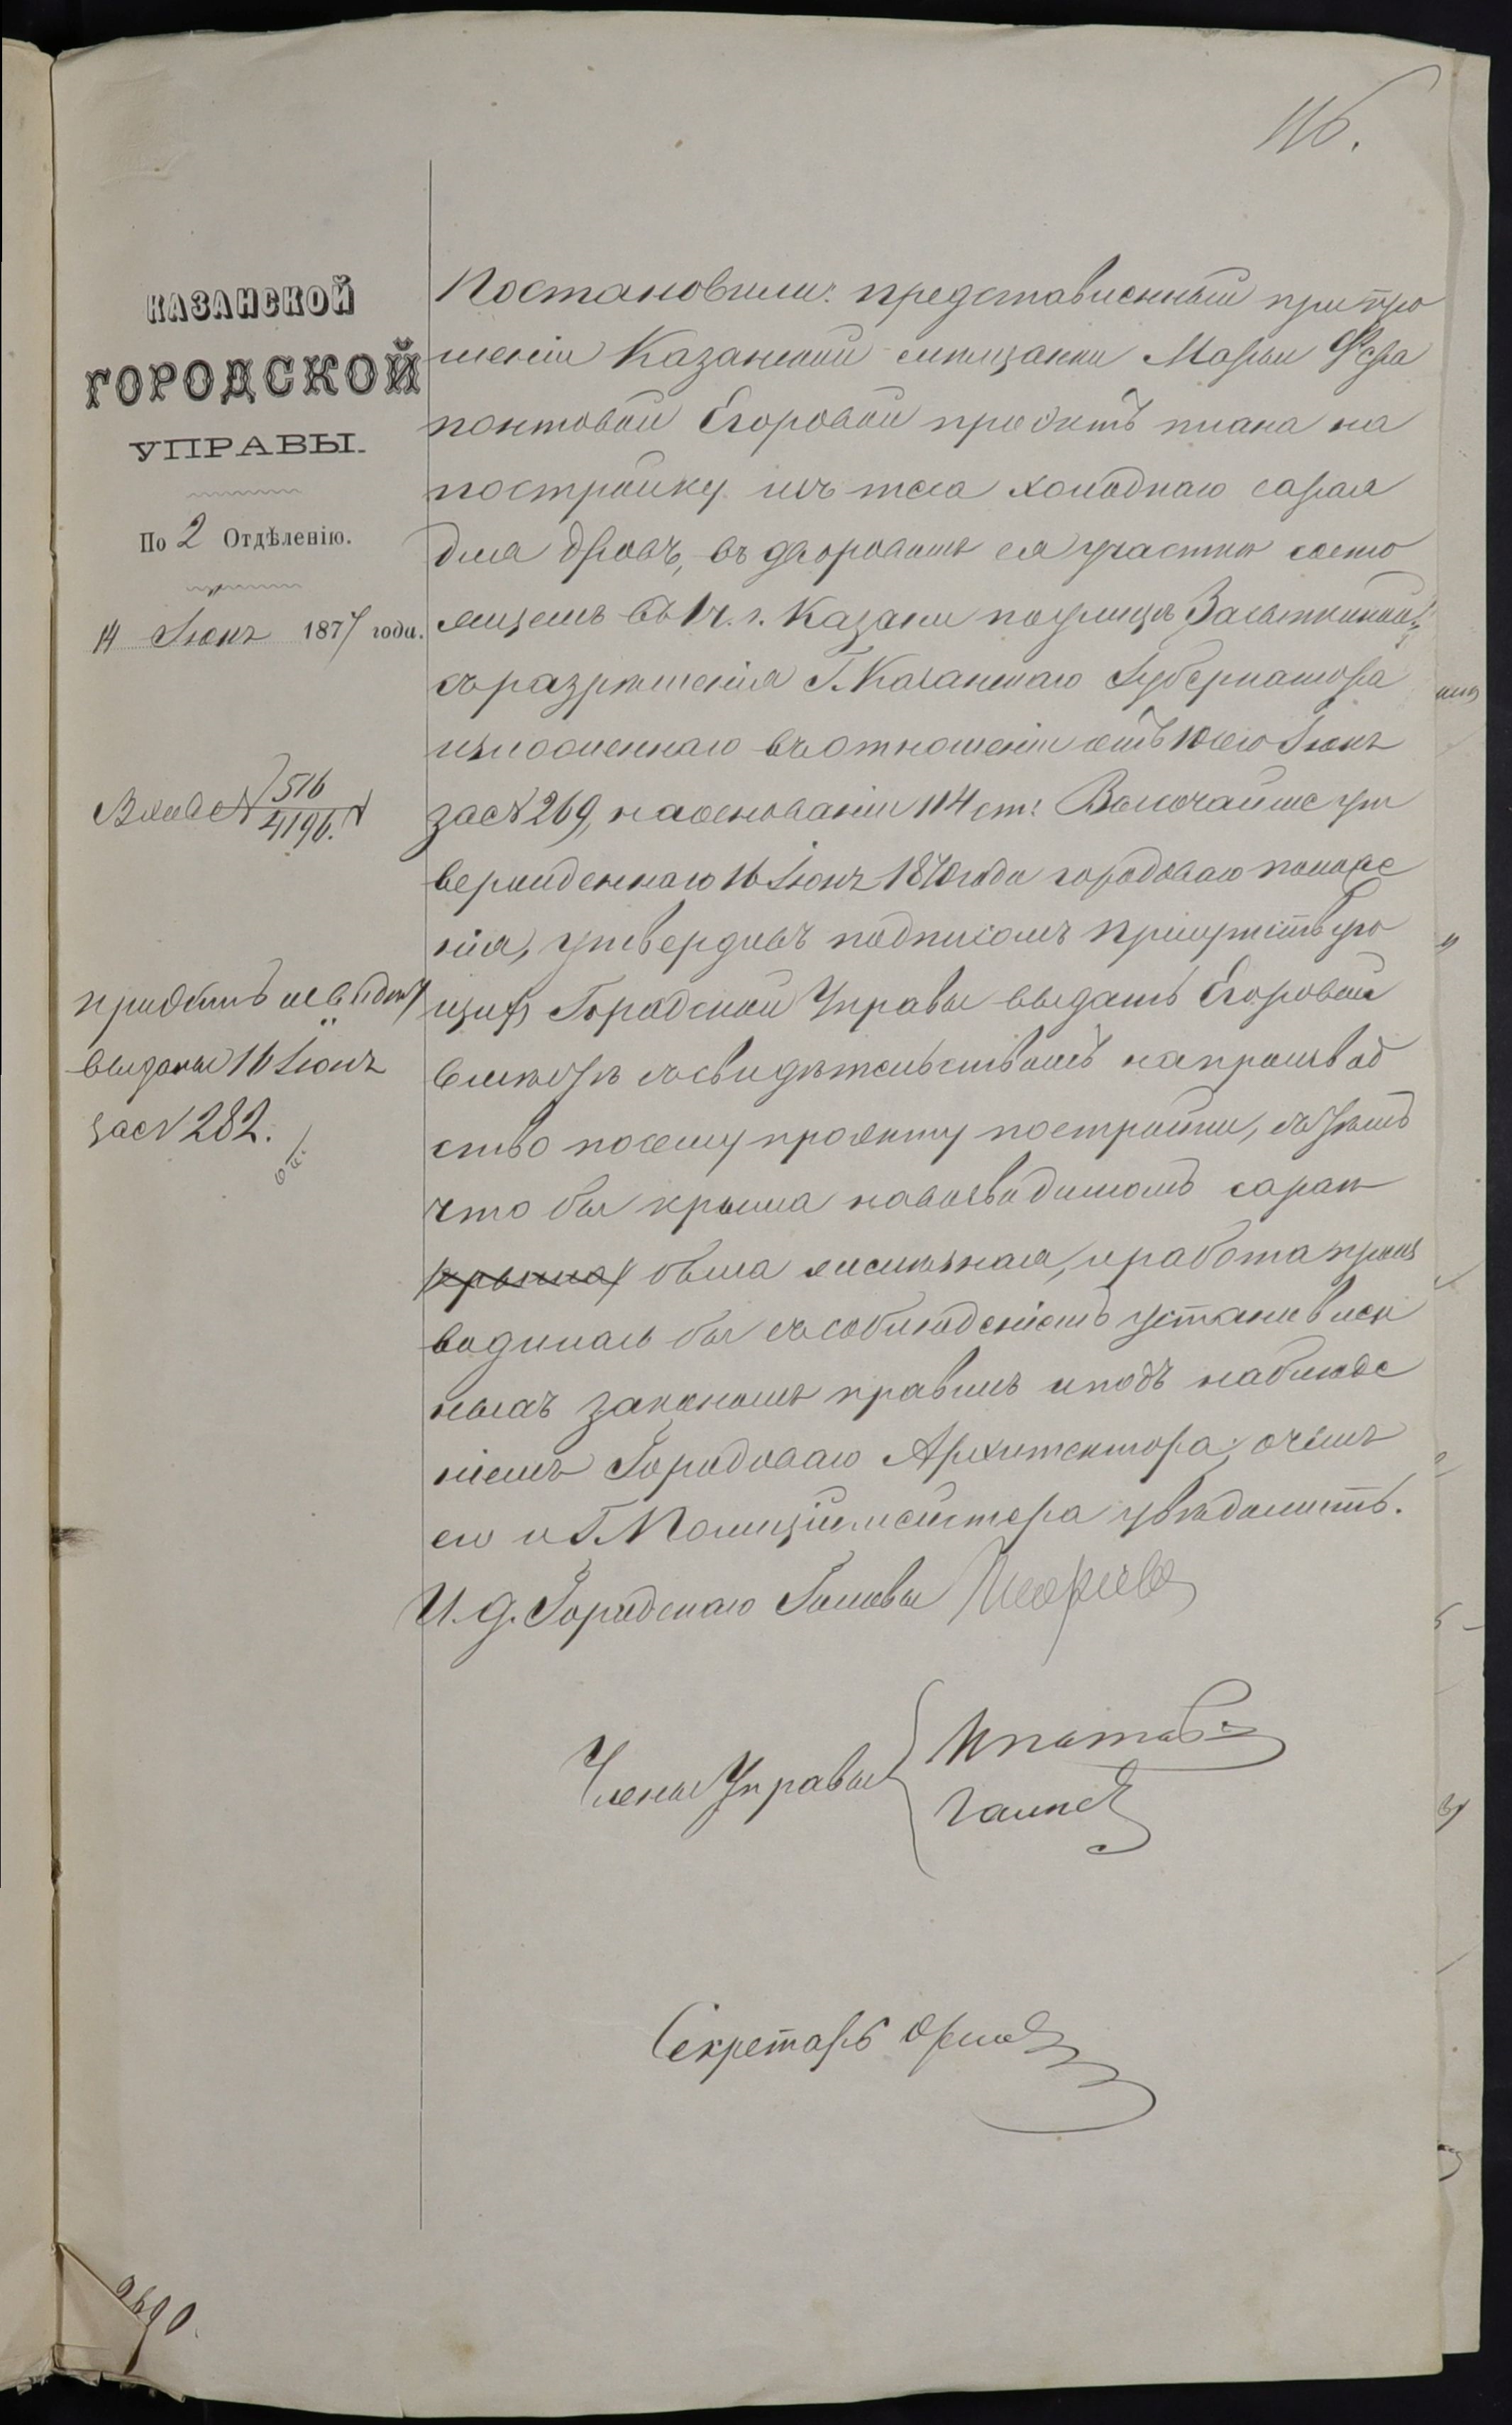 116.
КАЗАНСКОЙ
ГОРОДСКОЙ
УПРАВЫ.
По 2 Отдѣленію.
14 Іюня 1877 года.
516
4196.
проэктъ и свидѣт
выданы 16 Іюня
за № 282.
Постановили: представленный при про
шеніи Казанской мѣщанки Марьи Фера
понтовой Егоровой проэктъ плана на
постройку изъ теса холоднаго сарая
для дровъ, въ дворовомъ ея участкѣ состо
ящемъ въ 1 ч. г. Казани по улицѣ Засыпкиной
съ разрѣшенія Г. Казанскаго Губернатора
изложеннаго въ отношеніи отъ 10 сего Іюня
за № 269, на основаніи 114 ст. Высочайше ут
вержденнаго 16 Іюня 1870 года городоваго положе
нія, утвердивъ подписомъ присутствую
щихъ Городской Управы выдать Егоровой
вмѣстѣ съ свидѣтельствомъ на производ
ство по сему проэкту постройки, съ тѣмъ
что бы крыша на возводимомъ сараѣ
крыша была желѣзная, и работа произ
водилась бы съ соблюденіемъ установлен
ныхъ закономъ правилъ и подъ наблюде
ніемъ Городоваго Архитектора; о чемъ
его и Г. Полиціймейстера увѣдомить.
И. д. Городскаго Головы
Члены Управы Ипатовъ
Секретарь Орловъ
2690.